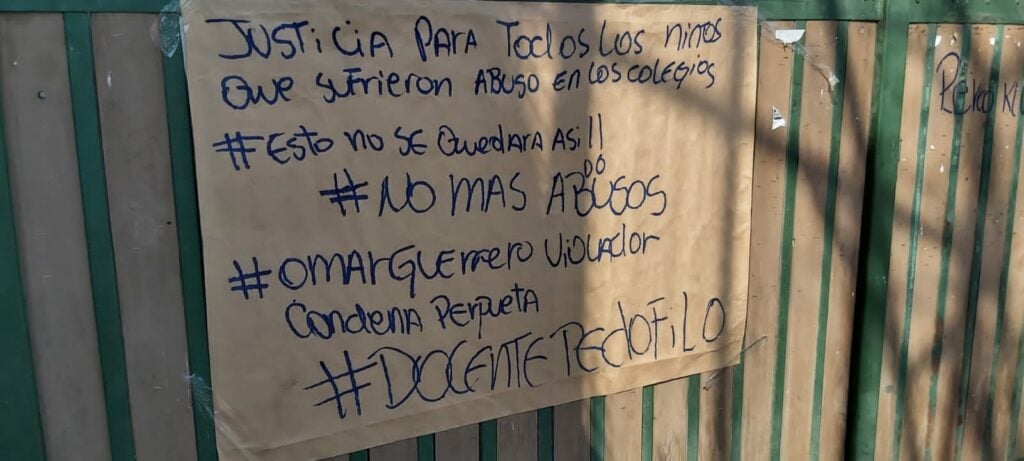 JUSTICIA PARA Todos Los niños
Que sufrieron ABUSO EN LOS COLEGIOS
#ESto no SE QuedARA ASi!!
#NO MAS ABUSOS
#OMARGUErrero VIOLADOR
CondenA PErpueta
#DOCENTEPEdoFILO